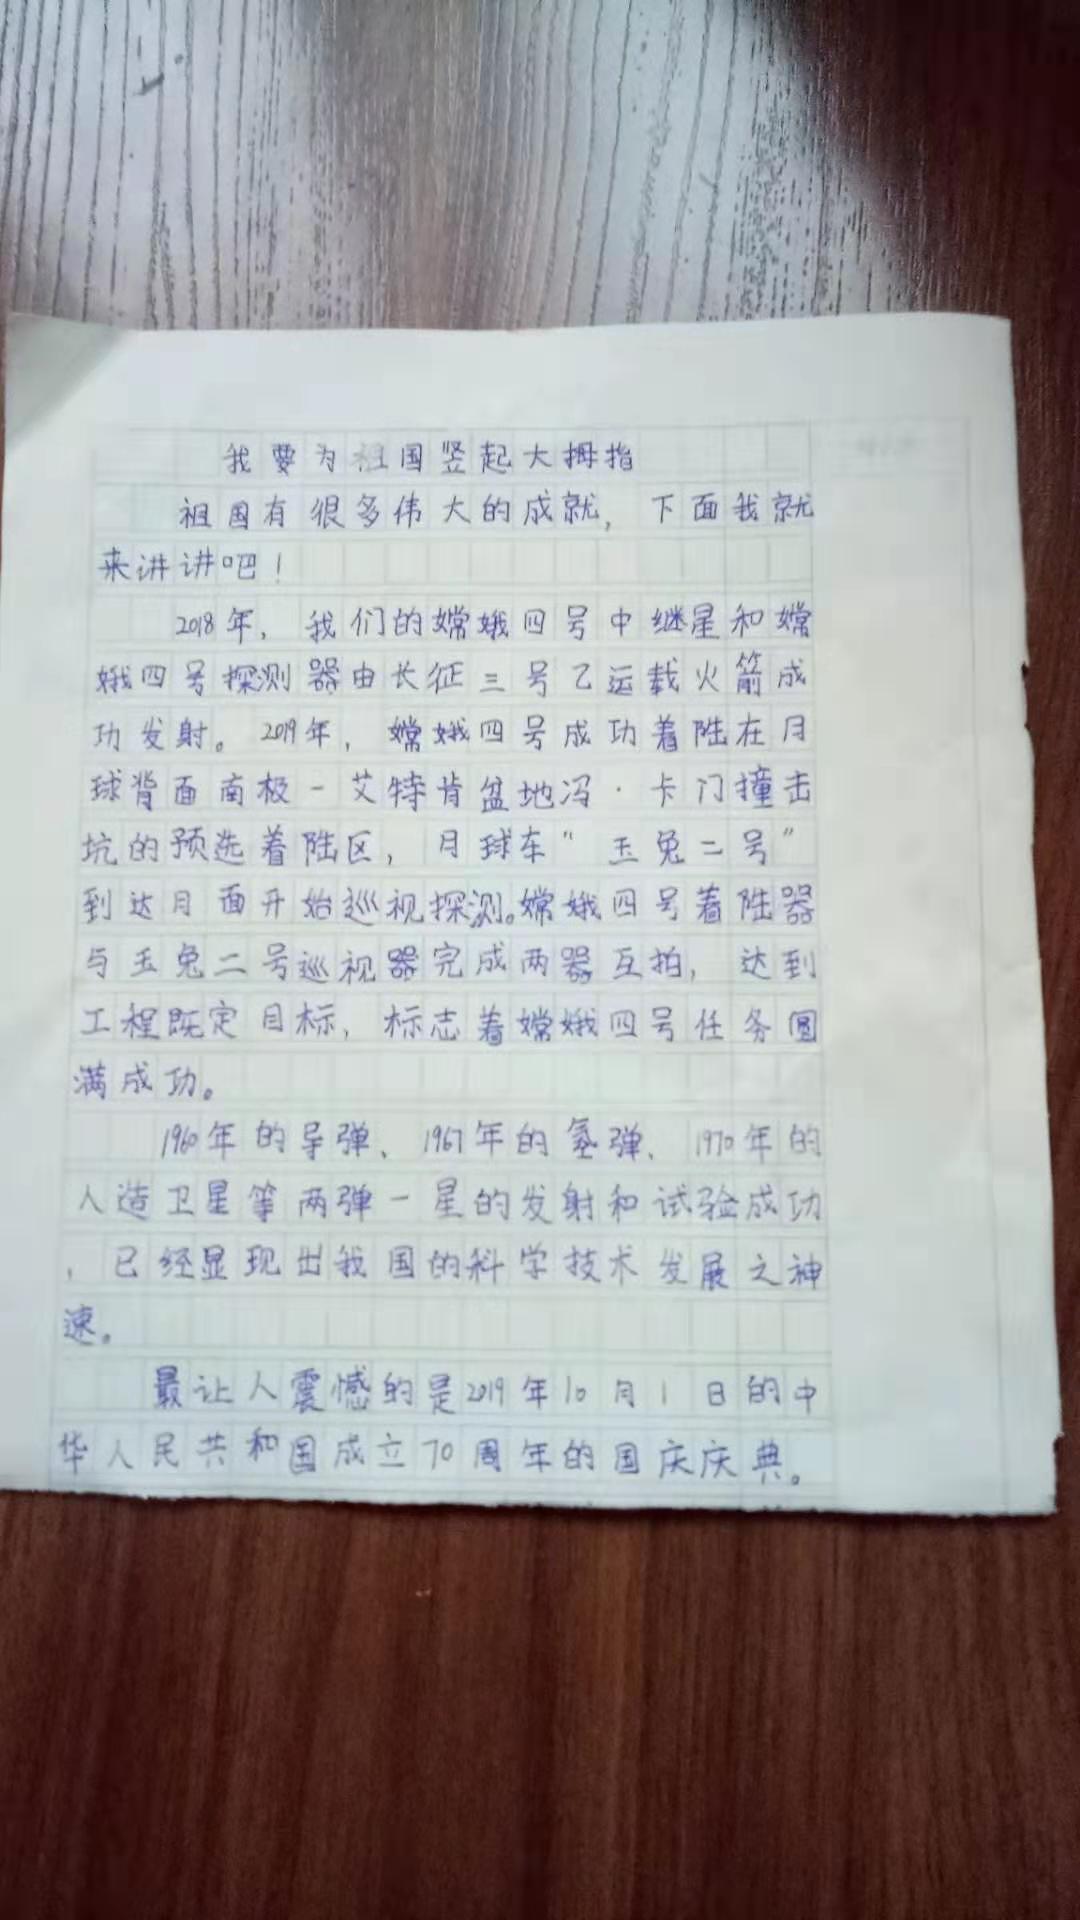 我要为祖国竖起大拇指
祖国有很多伟大的成就，下面我就
来讲讲吧！
2018年，我们的嫦娥四号中继星和嫦
娥四号探测器由长征三号乙运载火箭成
功发射。2019年，嫦娥四号成功着陆在月
球背面南极-艾特肯盆地冯·卡门撞击
坑的预选着陆区，月球车“玉兔二号”
到达月面开始巡视探测。嫦娥四号着陆器
与玉兔二号巡视器完成两器互拍，达到
工程既定目标，标志着嫦娥四号任务圆
满成功。
1960年的导弹、1967年的氢弹、1970年的
人造卫星等两弹一星的发射和试验成功
，已经显现出我国的科学技术发展之神
速。
最让人震憾的是2019年10月1日的中
华人民共和国成立70周年的国庆庆典。